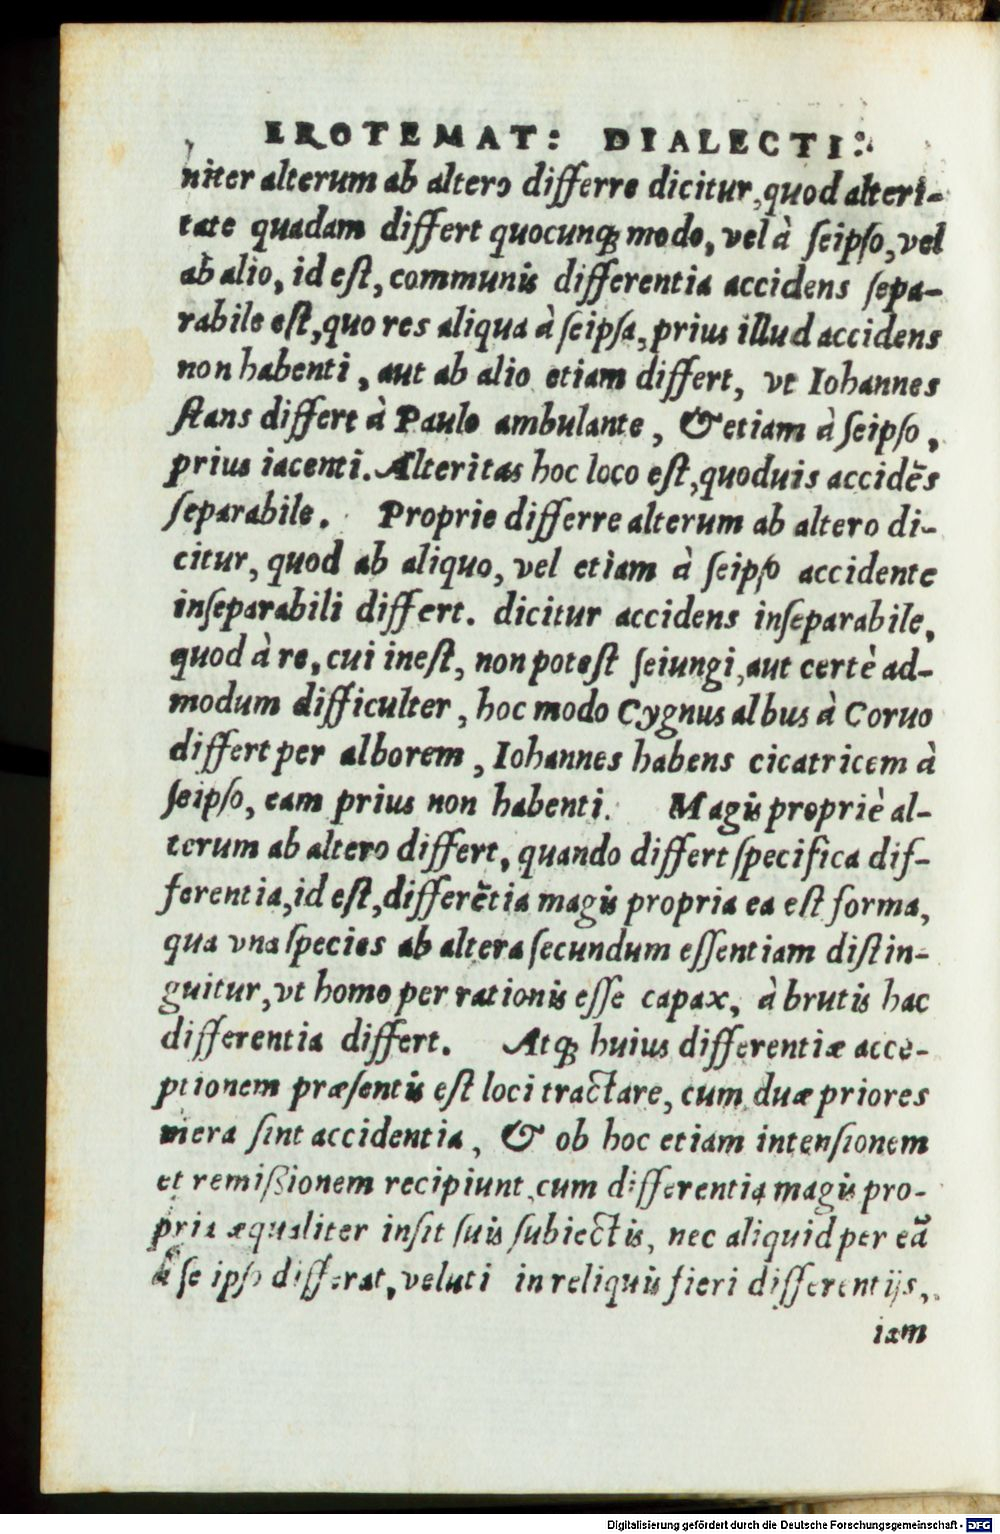 EROTEMAT: DIALECTI:
niter alterum ab altero differre dicitur, quod alteri-
tate quadam differt quocunq; modo, vel à ſeipſo, vel
ab alio, id eſt, communis differentia accidens ſepa-
rabile eſt, quo res aliqua à ſeipſa, prius illud accidens
non habenti, aut ab alio etiam differt, vt Iohannes
ſtans differt à Paulo ambulante, & etiam à ſeipſo,
prius iacenti. Alteritas hoc loco eſt, quoduis accidẽs
ſeparabile. Proprie differre alterum ab altero di-
citur, quod ab aliquo, vel etiam à ſeipſo accidente
inſeparabili differt. dicitur accidens inſeparabile,
quod à re, cui ineſt, non poteſt ſeiungi, aut certè ad-
modum difficulter, hoc modo Cygnus albus à Coruo
differt per alborem, Iohannes habens cicatricem à
ſeipſo, eam prius non habenti. Magis propriè al-
terum ab altero differt, quando differt ſpecifica dif-
ferentia, id eſt, differẽtia magis propria ea eſt forma,
qua vna ſpecies ab altera ſecundum eſſentiam diſtin-
guitur, vt homo per rationis eſſe capax, à brutis hac
differentia differt. Atq; huius differentiæ acce-
ptionem præſentis eſt loci tractare, cum duæ priores
mera ſint accidentia, & ob hoc etiam intenſionem
et remiſsionem recipiunt, cum differentia magis pro-
pria æqualiter inſit ſuis ſubiectis, nec aliquid per eã
à ſe ipſo differat, veluti in reliquis fieri differentijs,
iam
Digitalisierung gefördert durch die Deutsche Forschungsgemeinschaft - DFG